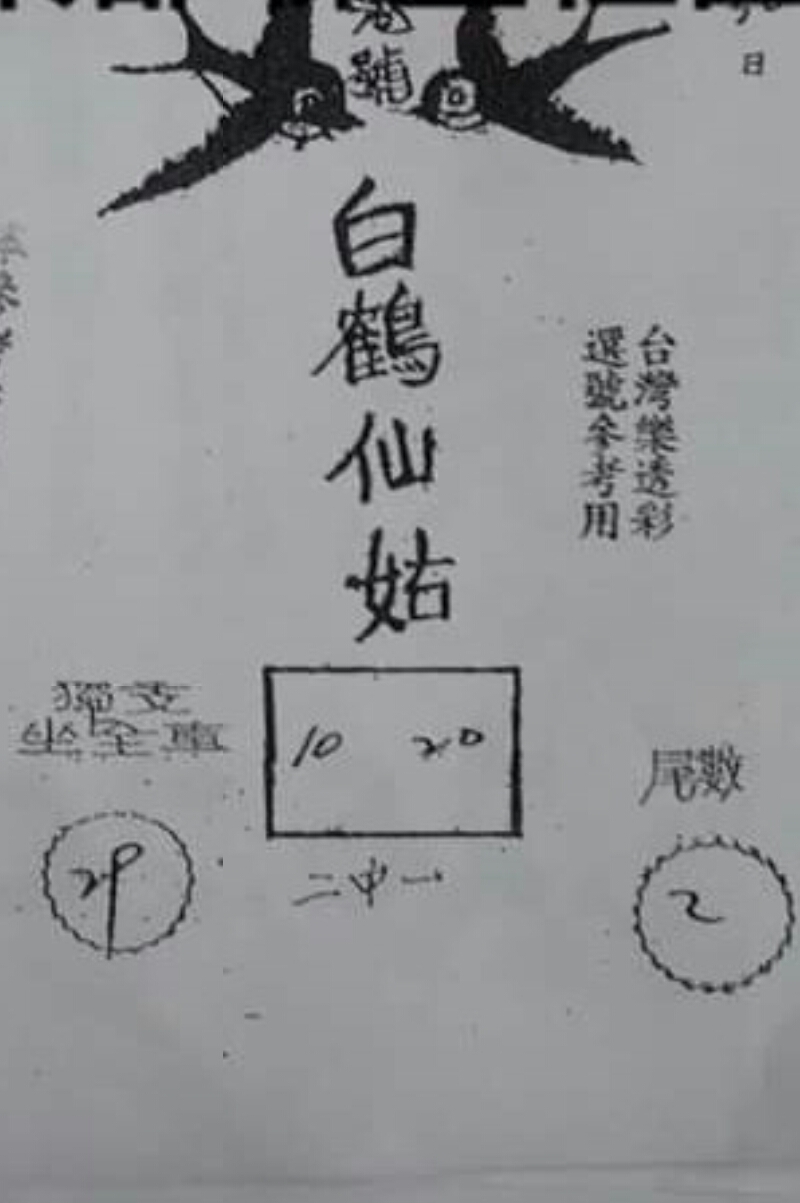 號
日
白鶴仙姑
台灣樂透彩
選號參考用
獨支
全車
10 20
二中一
29
尾數
2